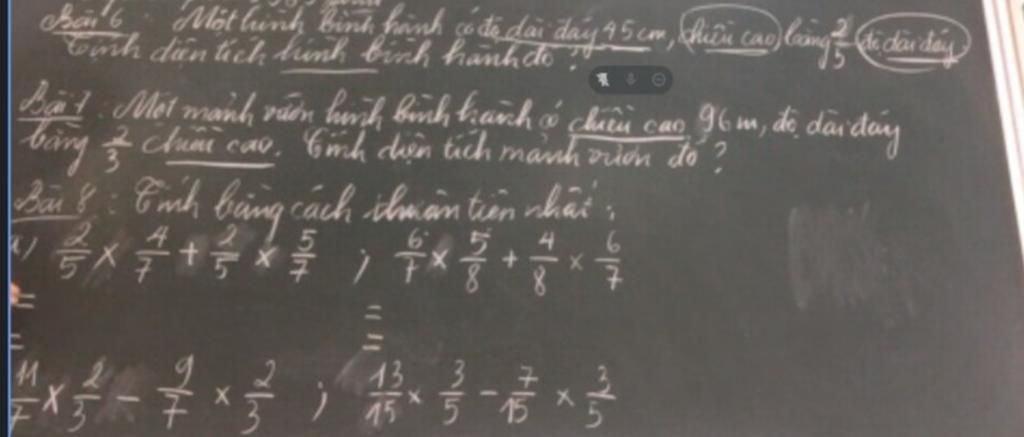 Bài 6: Một hình bình hành có độ dài đáy 45 cm, chiều cao bằng 2/5 độ dài đáy
Tính diện tích hình bình hành đó?
Bài 7: Một mảnh vườn hình bình hành có chiều cao 96 m, độ dài đáy
bằng 2/3 chiều cao. Tính diện tích mảnh vườn đó?
Bài 8: Tính bằng cách thuận tiện nhất:
a) 2/5 × 4/7 + 2/5 × 5/7 ; 6/7 × 5/8 + 4/8 × 6/7
= =
= =
11/7 × 2/3 - 9/7 × 2/3 ; 13/15 × 3/5 - 7/15 × 3/5